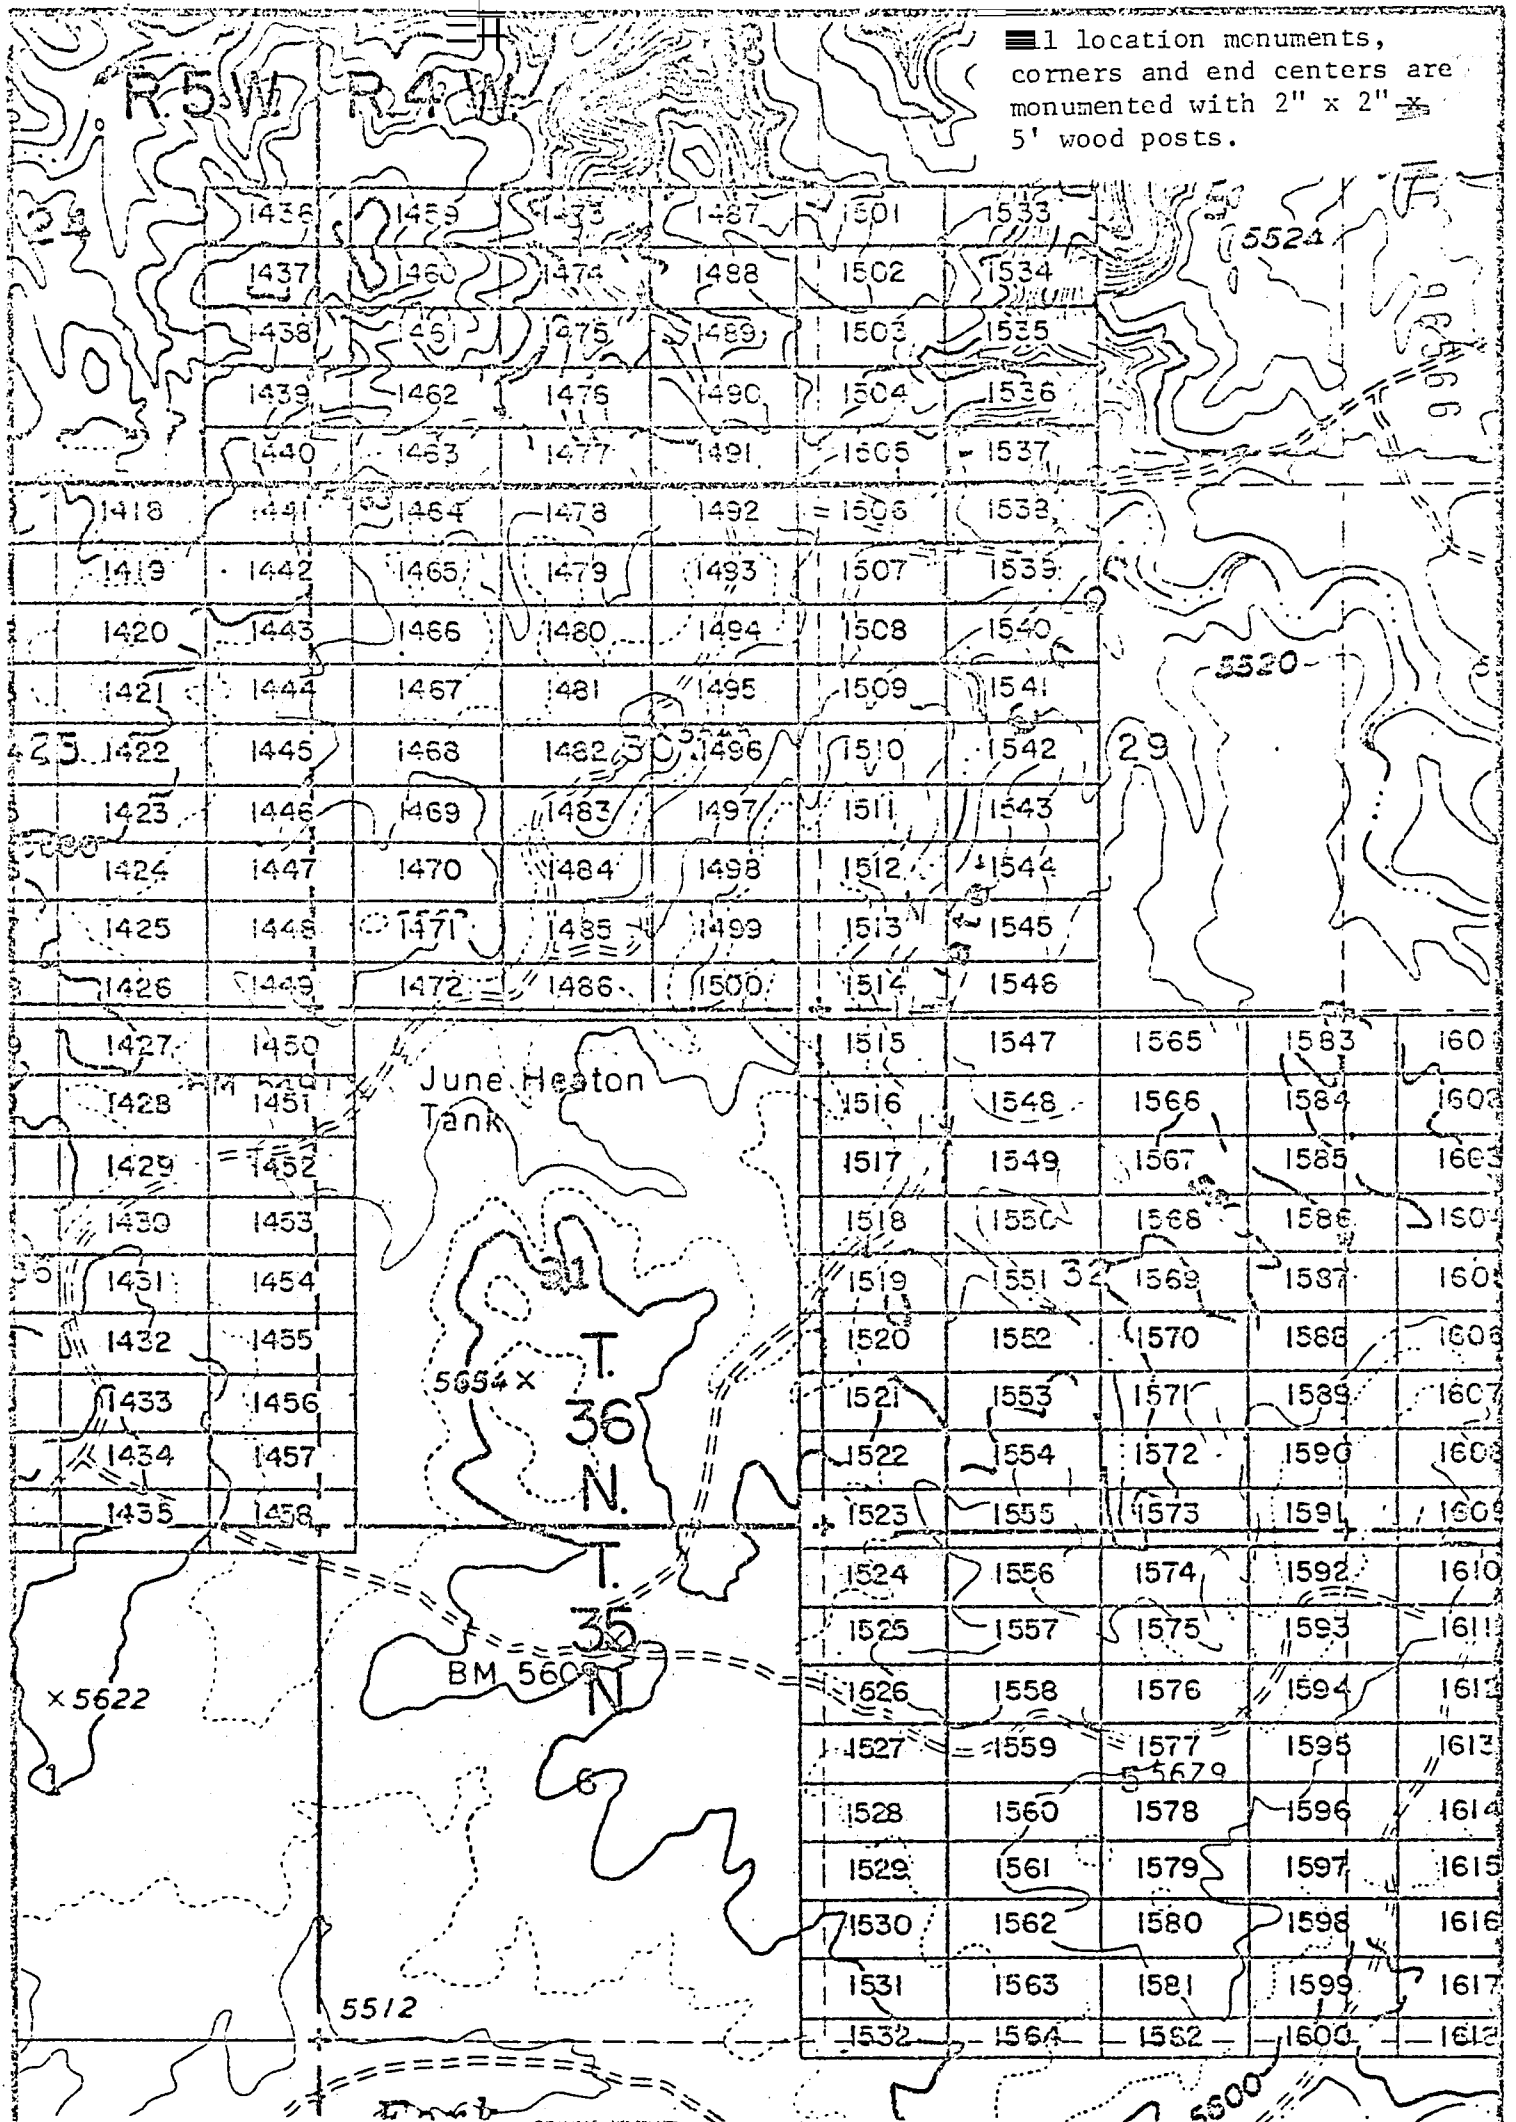 1 location monuments,
corners and end centers are
monumented with 2" x 2" x
5' wood posts.
R.5W. R.4W.
24 1436 1459 1473 1487 1501 1533
5524
1437 1460 1474 1488 1502 1534
1438 1461 1475 1489 1503 1535
1439 1462 1476 1490 1504 1536
1440 1463 1477 1491 1505 1537
1418 1441 1464 1478 1492 1506 1538
1419 1442 1465 1479 1493 1507 1539
1420 1443 1466 1480 1494 1508 1540
5520
1421 1444 1467 1481 1495 1509 1541
25 1422 1445 1468 1482 30 1496 1510 1542 29
1423 1446 1469 1483 1497 1511 1543
1424 1447 1470 1484 1498 1512 1544
1425 1448 1471 1485 1499 1513 1545
1426 1449 1472 1486 1500 1514 1546
1427 1450 1515 1547 1565 1583 160
June Heaton
Tank
1428 1451 1516 1548 1566 1584 1602
1429 1452 1517 1549 1567 1585 1603
1430 1453 1518 1550 1568 1586 160
31
1431 1454 1519 1551 32 1569 1587 160
1432 1455 1520 1552 1570 1588 1606
T.
36
N.
5654 ×
1433 1456 1521 1553 1571 1589 1607
1434 1457 1522 1554 1572 1590 1608
1435 1458 1523 1555 1573 1591 1609
T.
35
N
1524 1556 1574 1592 1610
1525 1557 1575 1593 1611
BM 560
× 5622
1526 1558 1576 1594 1612
1527 1559 1577 1595 1613
5 5679
6
1
1528 1560 1578 1596 1614
1529 1561 1579 1597 1615
1530 1562 1580 1598 1616
1531 1563 1581 1599 1617
5512
1532 1564 1582 1600 1618
5600